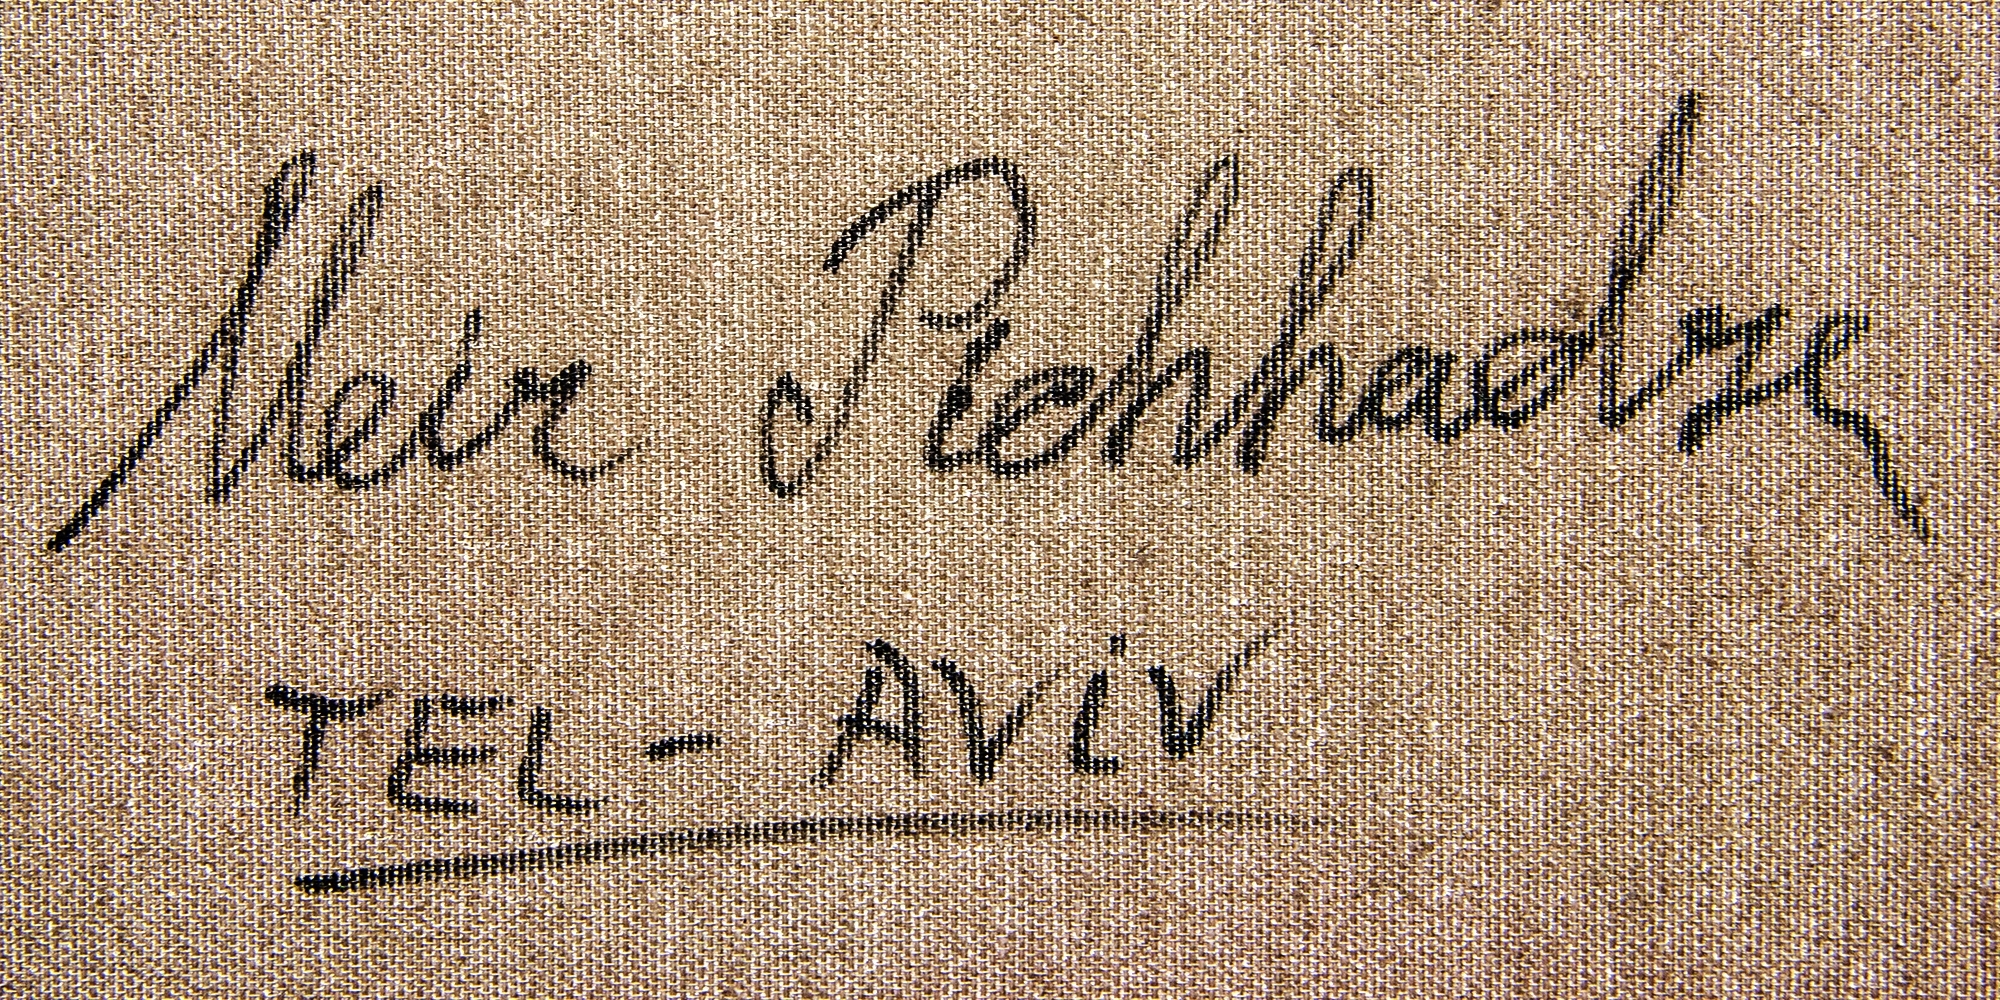 Meir Pichhadze
TEL - AViV